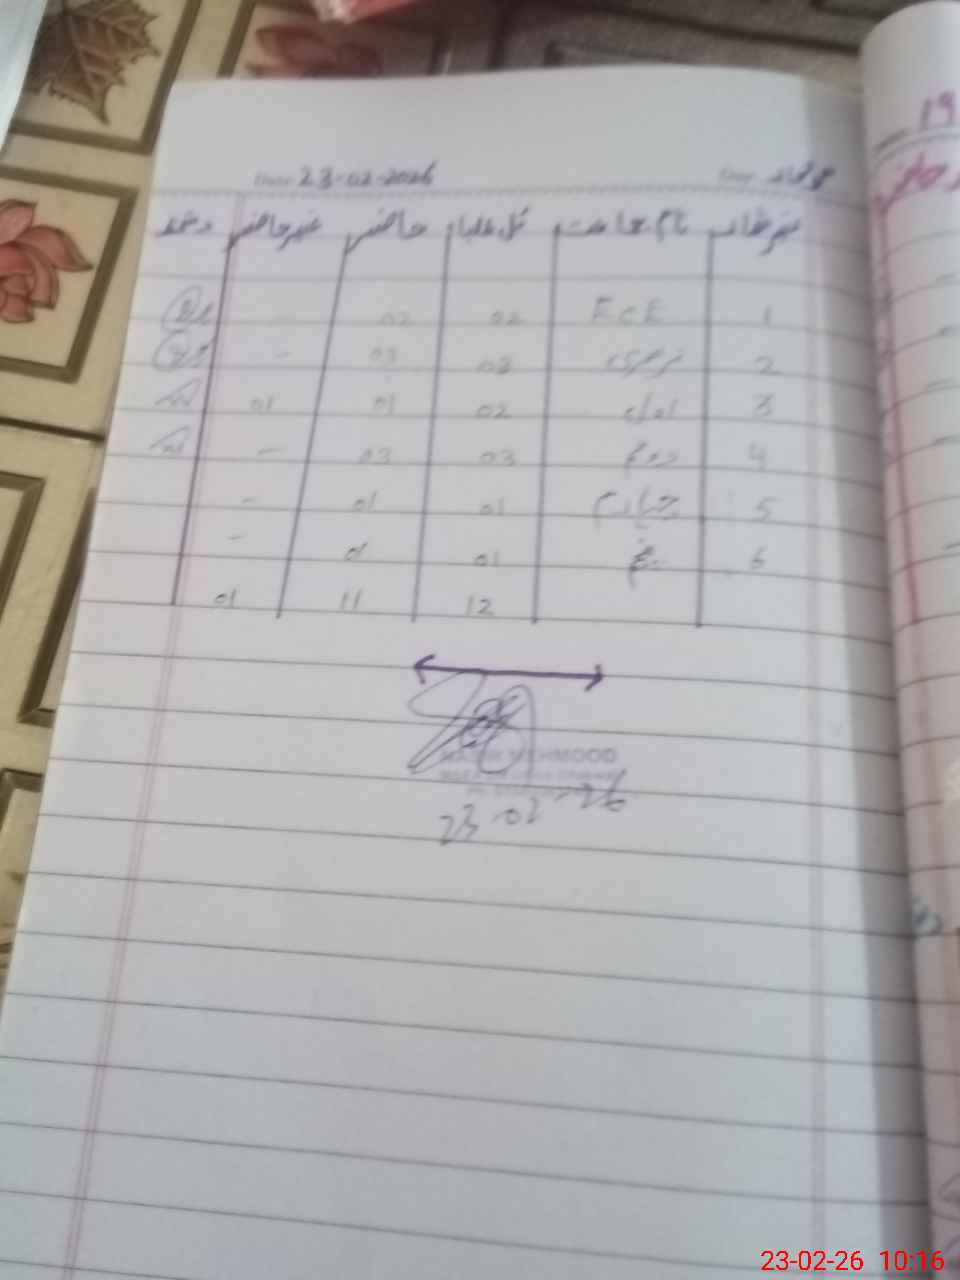 Date: 23-02-2026 Day:
نمبر شمار نام جماعت کل طلبا حاضر غیر حاضر دستخط
1 ECE 02 02
2 نرسری 03 03 -
3 اول 02 01 01
4 دوم 03 03 -
5 چہارم 01 01 -
6 پنجم 01 01 -
12 11 01
MEHMOOD
23-02-26
19
حاضر
23-02-26 10:16